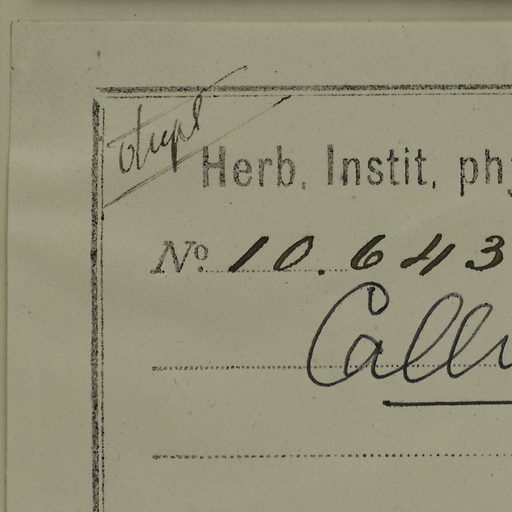 dupl
Herb. Instit. phy
No. 10.643
Call